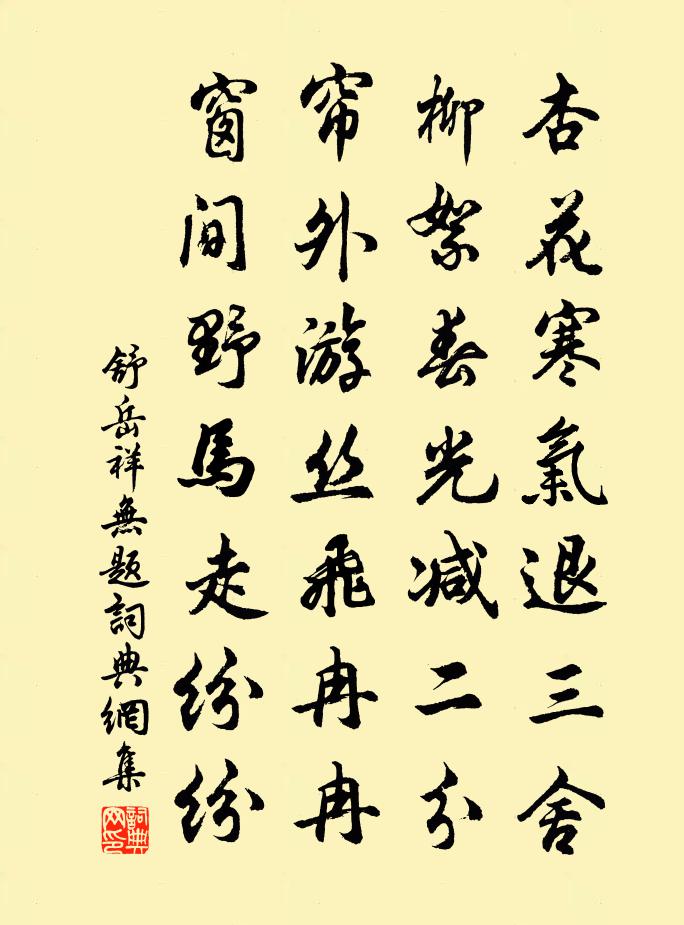 杏花寒氣退三舍
柳絮春光减二分
帘外游丝飛冉冉
窗间野馬走纷纷
舒岳祥無题詞典網集
詞典
网印